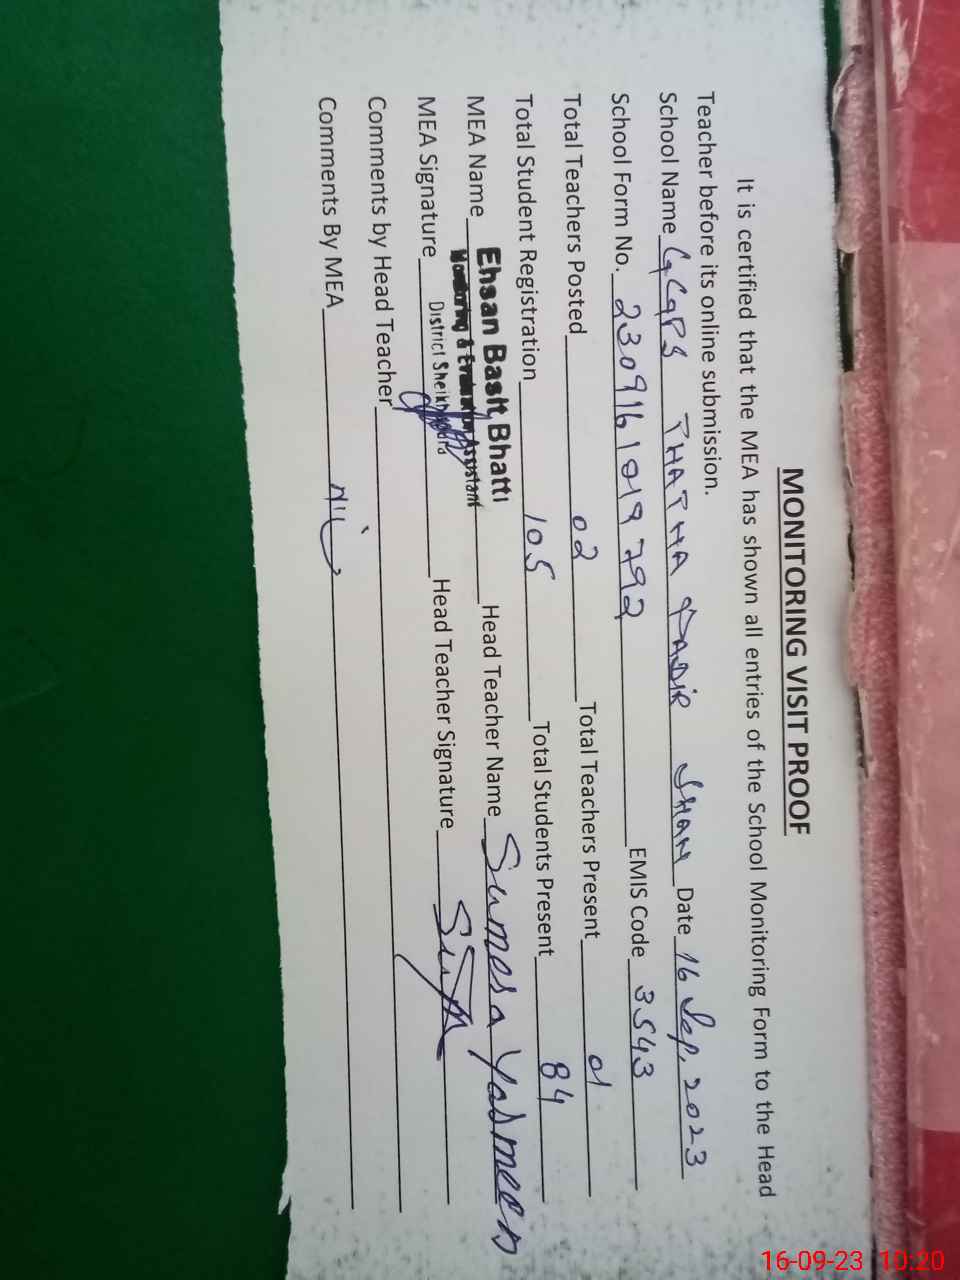 MONITORING VISIT PROOF
It is certified that the MEA has shown all entries of the School Monitoring Form to the Head
Teacher before its online submission.
School Name GCGPS THATHA QADIR SHAH Date 16 Sep. 2023
School Form No. 2309161019792 EMIS Code 3543
Total Teachers Posted 02 Total Teachers Present 01
Total Student Registration 105 Total Students Present 84
MEA Name Ehsan Basit Bhatti Head Teacher Name Sumesa Yasmeen
Monitoring & Evaluation Assistant
MEA Signature District Sheikhupura Head Teacher Signature
Comments by Head Teacher
Comments By MEA Nil
16-09-23 10:20